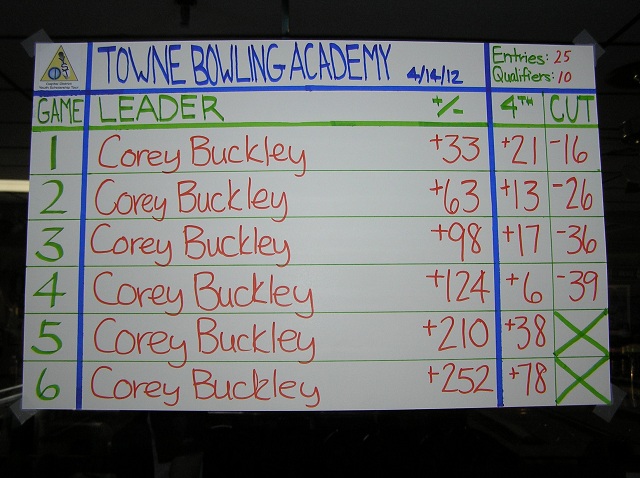 TOWNE BOWLING ACADEMY 4/14/12
Entries: 25
Qualifiers: 10
GAME LEADER +/- 4TH CUT
1 Corey Buckley +33 +21 -16
2 Corey Buckley +63 +13 -26
3 Corey Buckley +98 +17 -36
4 Corey Buckley +124 +6 -39
5 Corey Buckley +210 +38 X
6 Corey Buckley +252 +78 X